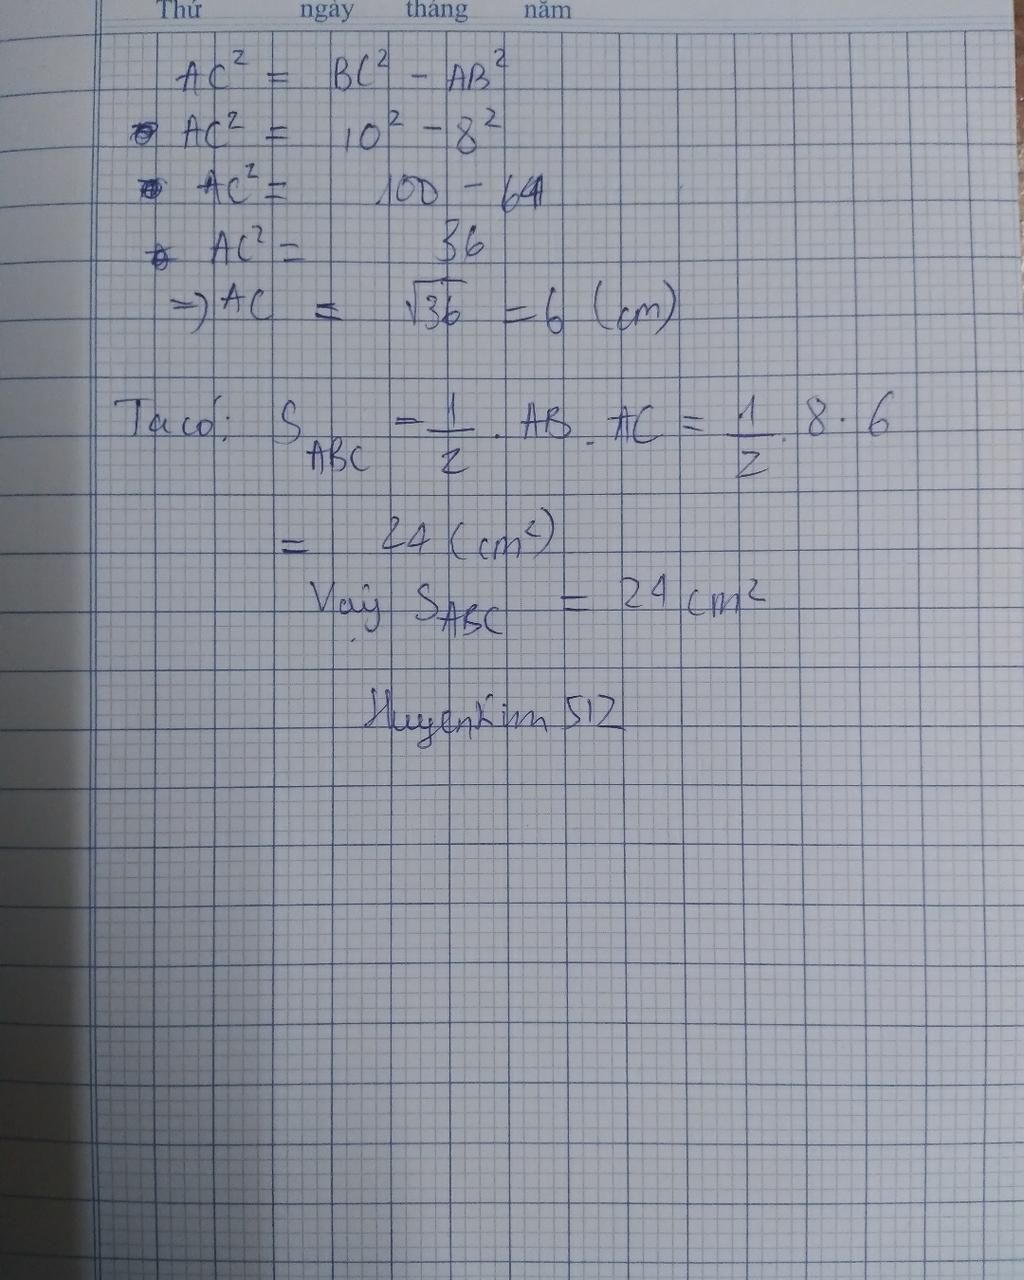 Thứ ngày tháng năm
AC² = BC² - AB²
AC² = 10² - 8²
AC² = 100 - 64
AC² = 36
=> AC = √36 = 6 (cm)
Ta có: S_ABC = 1/2 . AB . AC = 1/2 . 8 . 6
= 24 (cm²)
Vậy S_ABC = 24 cm²
Huyenkim 512